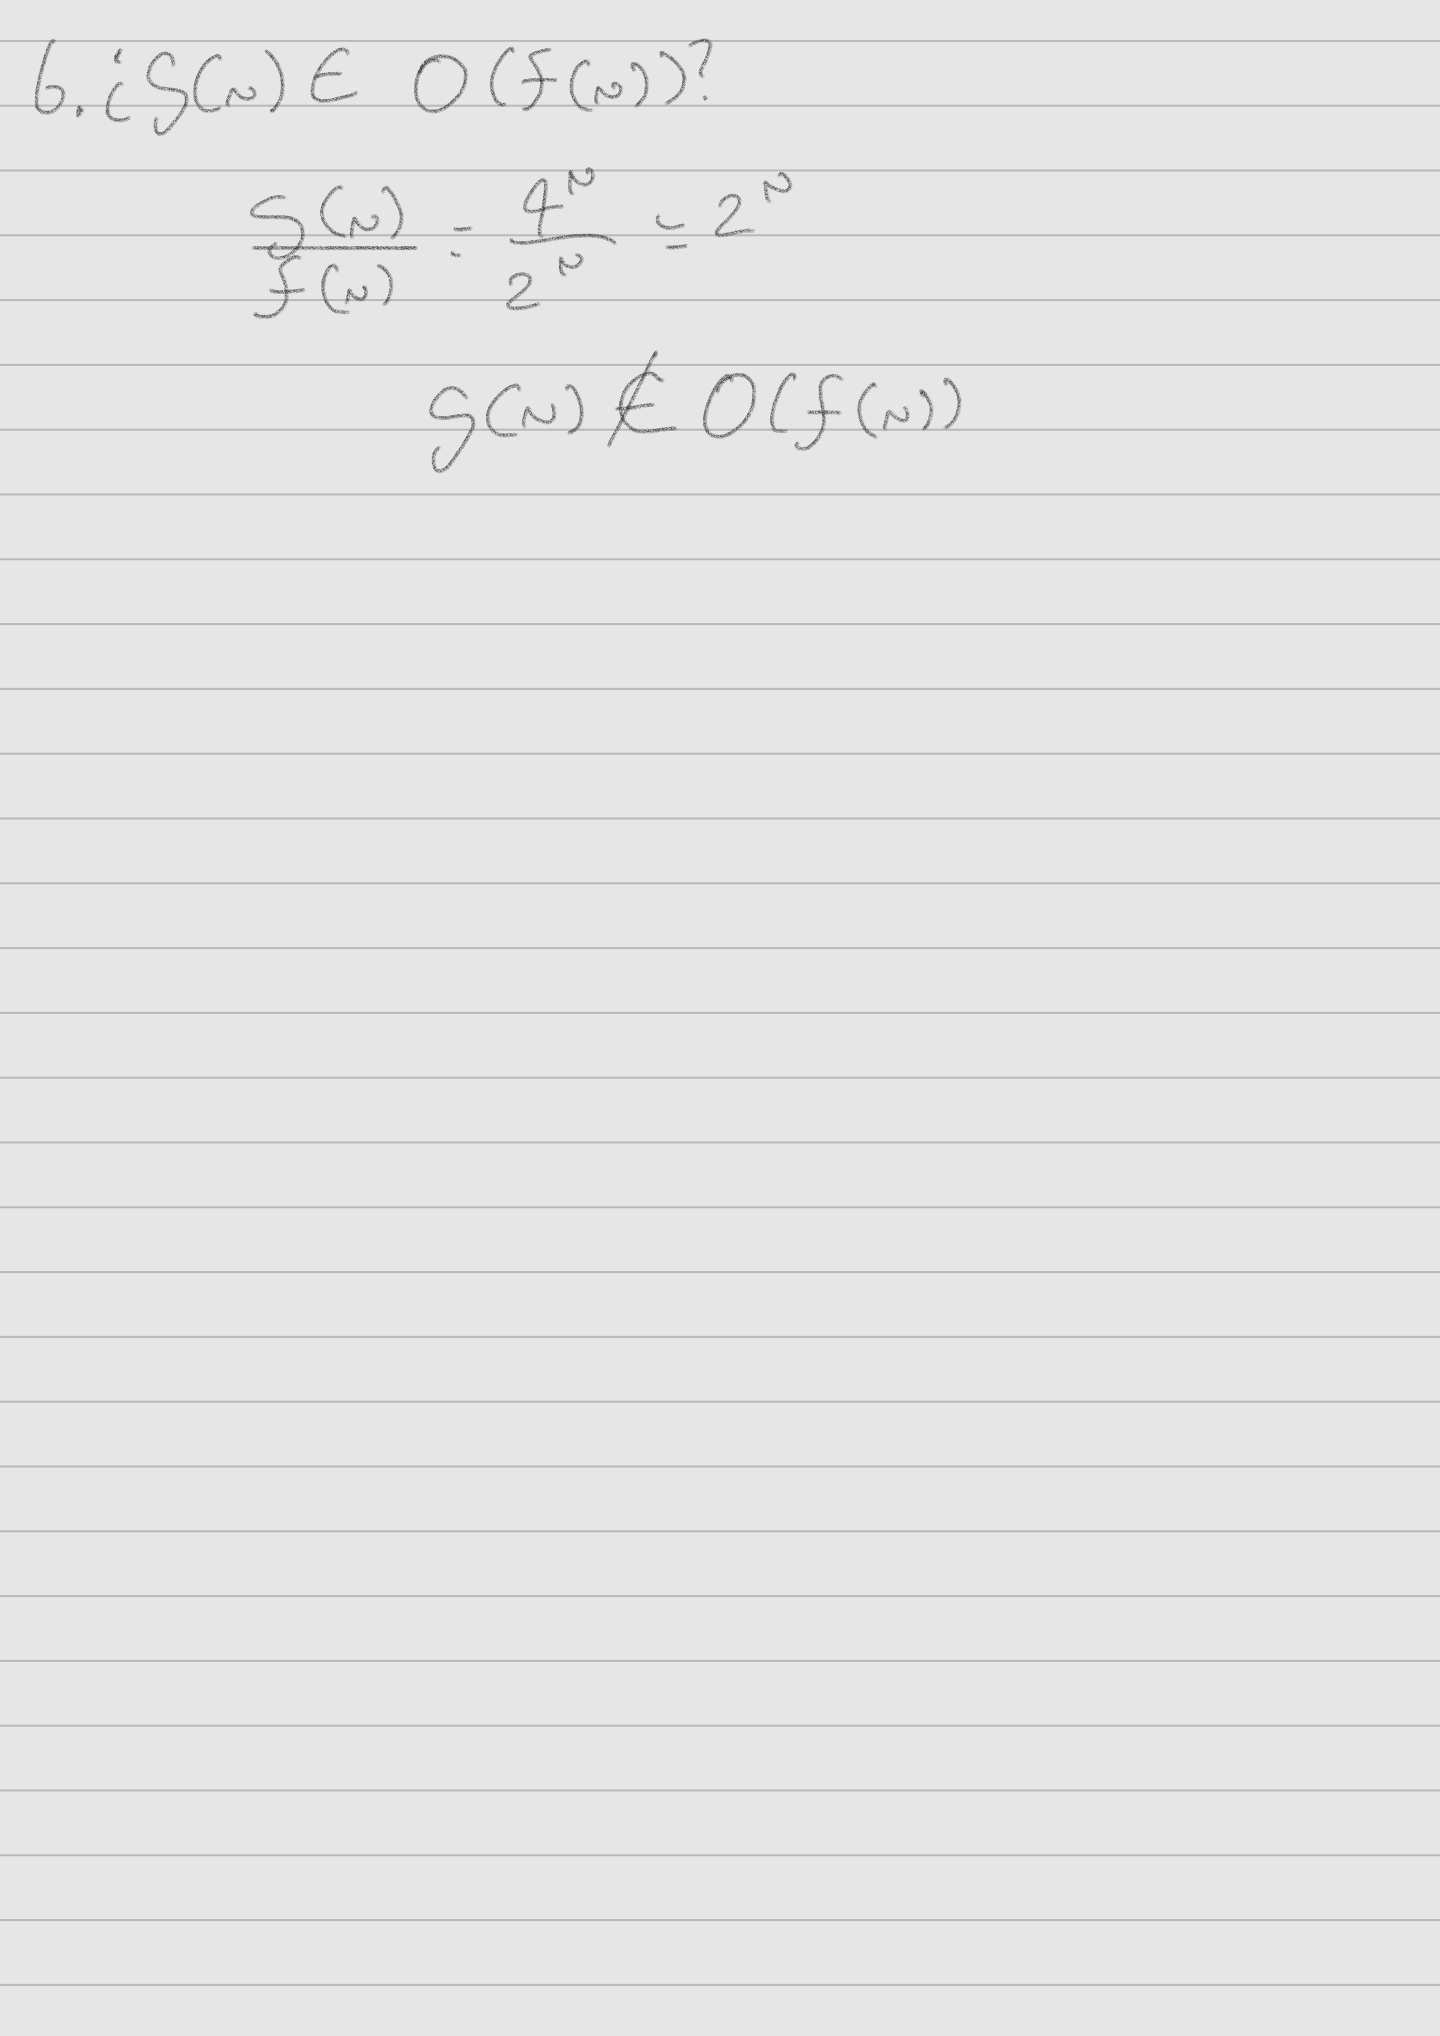 6. ¿g(n) ∈ O(f(n))?
g(n)/f(n) = 4^n/2^n = 2^n
g(n) ∉ O(f(n))